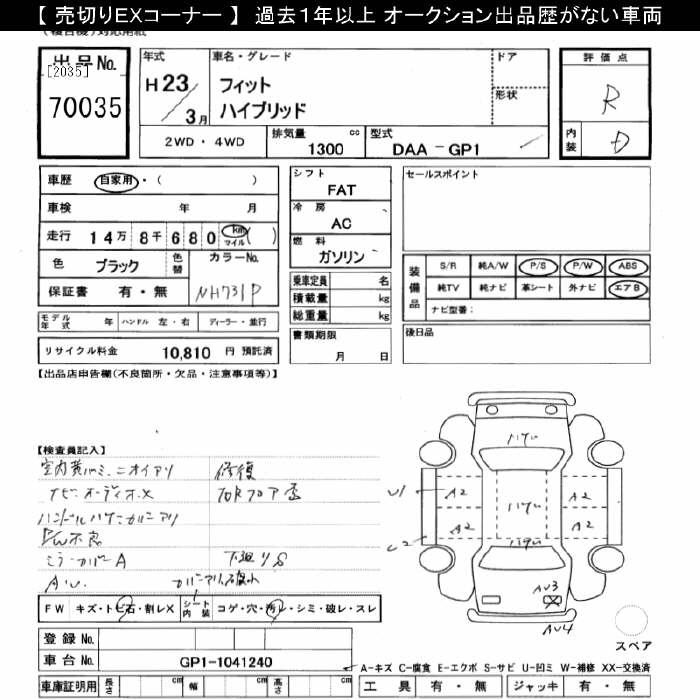 【 売切りEXコーナー 】 過去1年以上 オークション出品歴がない車両
出品No.
[2035]
70035
年式
H23/3月
車名・グレード
フィット
ハイブリッド
ドア
形状
評価点
R
内装
D
2WD・4WD
排気量 cc
1300
型式
DAA-GP1
車歴 自家用・( )
車検 年 月
走行 14万8千680 km マイル ( )
色 ブラック 色替 カラーNo.
保証書 有・無 NH731P
モデル年式 年 ハンドル 左・右 ディーラー・並行
リサイクル料金 10,810 円 預託済
シフト
FAT
冷房
AC
燃料
ガソリン
乗車定員 名
積載量 kg
総重量 kg
書類期限
月 日
セールスポイント
装備品
S/R 純A/W P/S P/W ABS
純TV 純ナビ 革シート 外ナビ エアB
ナビ型番:
後日品
【出品店申告欄(不良箇所・欠品・注意事項等)】
【検査員記入】
ナビ・オーディオ×
修復
P/W不良
ミラーカバーA
下廻りS
ハゲ
ハゲ
ハゲ
U1
A2
A2
A2
A2
AU3
AU4
スペア
FW キズ・トビ石・割レX シート内装 コゲ・穴・汚レ・シミ・破レ・スレ
登録No.
車台No. GP1-1041240
車庫証明用 長さ cm 幅 cm 高さ cm
A-キズ C-腐食 E-エクボ S-サビ U-凹ミ W-補修 XX-交換済
工具 有・無 ジャッキ 有・無